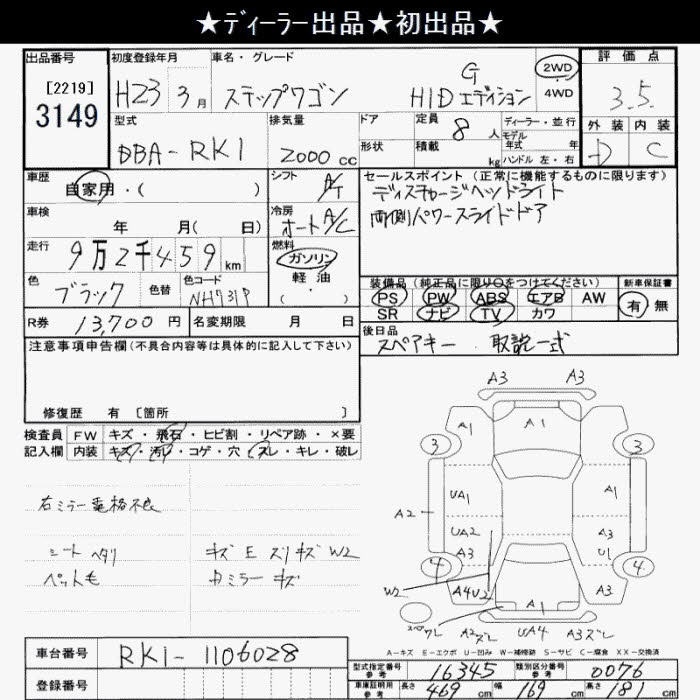 ★ディーラー出品★初出品★
出品番号 初度登録年月 車名・グレード 評価点
[2219]
3149
H23 3月 ステップワゴン G HIDエディション 2WD 4WD 3.5
型式 排気量 ドア 定員 8人 ディーラー・並行 外装 内装
モデル年式 年
DBA-RK1 2000cc 形状 積載 kg ハンドル 左・右 D C
車歴 シフト セールスポイント(正常に機能するものに限ります)
自家用・( ) A/T ディスチャージヘッドライト
車検 冷房 両側パワースライドドア
年 月( 日) オートA/C
走行 燃料
9万2千459km ガソリン
軽油
( ・ )
色 色替 色コード 装備品(純正品に限り○をつけてください) 新車保証書
ブラック NH731P PS PW ABS エアB AW 有 無
SR ナビ TV カワ
R券 13,700円 名変期限 月 日 後日品
スペアキー 取説一式
注意事項申告欄(不具合内容等は具体的に記入して下さい)
修復歴 有 [箇所 ]
検査員 FW キズ・飛石・ヒビ割・リペア跡・×要
記入欄 内装 キズ・汚レ・コゲ・穴・スレ・キレ・破レ
右ミラー電格不良
シート ヘタリ キズ E ズリキズ W2
ペット毛 カミラー キズ
A3 A3
A1 A1
3 3
UA1 A1
A2
UA2 A3
A3 U1
4 4
W2 A4U2 A3
A1
スペアレ A2ズレ UA4 A3ズレ
A-キズ E-エクボ U-凹み W-補修跡 S-サビ C-腐食 XX-交換済
車台番号 RK1-1106028
型式指定番号 参考 16345 類別区分番号 参考 0076
登録番号
車庫証明用 参考 長さ 469cm 幅 169cm 高さ 181cm